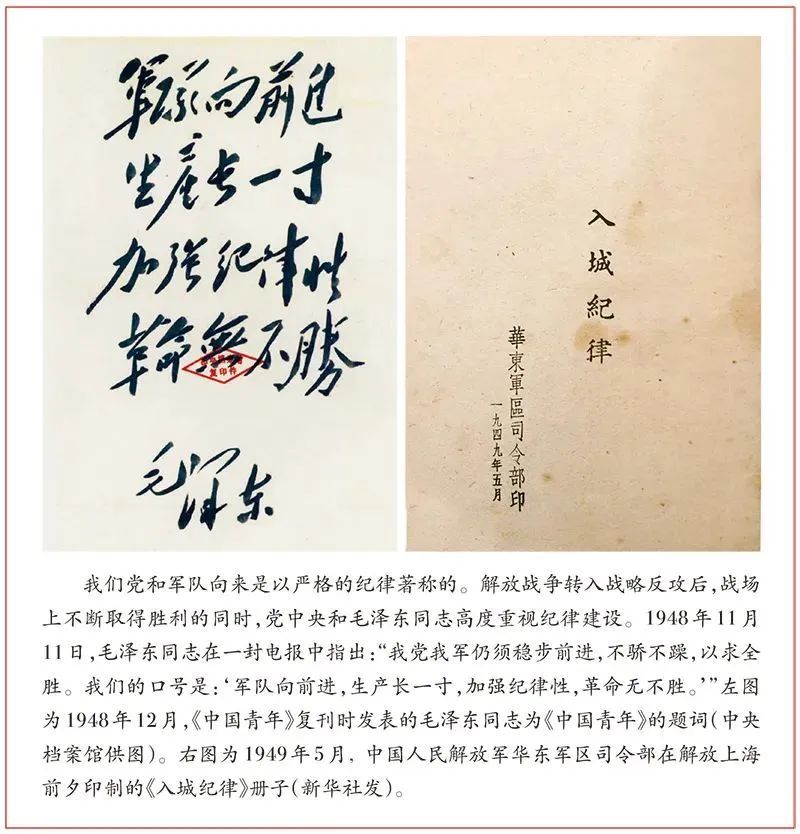 軍队向前進
生產长一寸
加強纪律性
革命無不勝
复印件
毛泽东
入城紀律
華東軍區司令部印
一九四九年五月
我们党和军队向来是以严格的纪律著称的。解放战争转入战略反攻后，战场
上不断取得胜利的同时，党中央和毛泽东同志高度重视纪律建设。1948年11月
11日，毛泽东同志在一封电报中指出：“我党我军仍须稳步前进，不骄不躁，以求全
胜。我们的口号是：‘军队向前进，生产长一寸，加强纪律性，革命无不胜。’”左图
为1948年12月，《中国青年》复刊时发表的毛泽东同志为《中国青年》的题词（中央
档案馆供图）。右图为1949年5月，中国人民解放军华东军区司令部在解放上海
前夕印制的《入城纪律》册子（新华社发）。